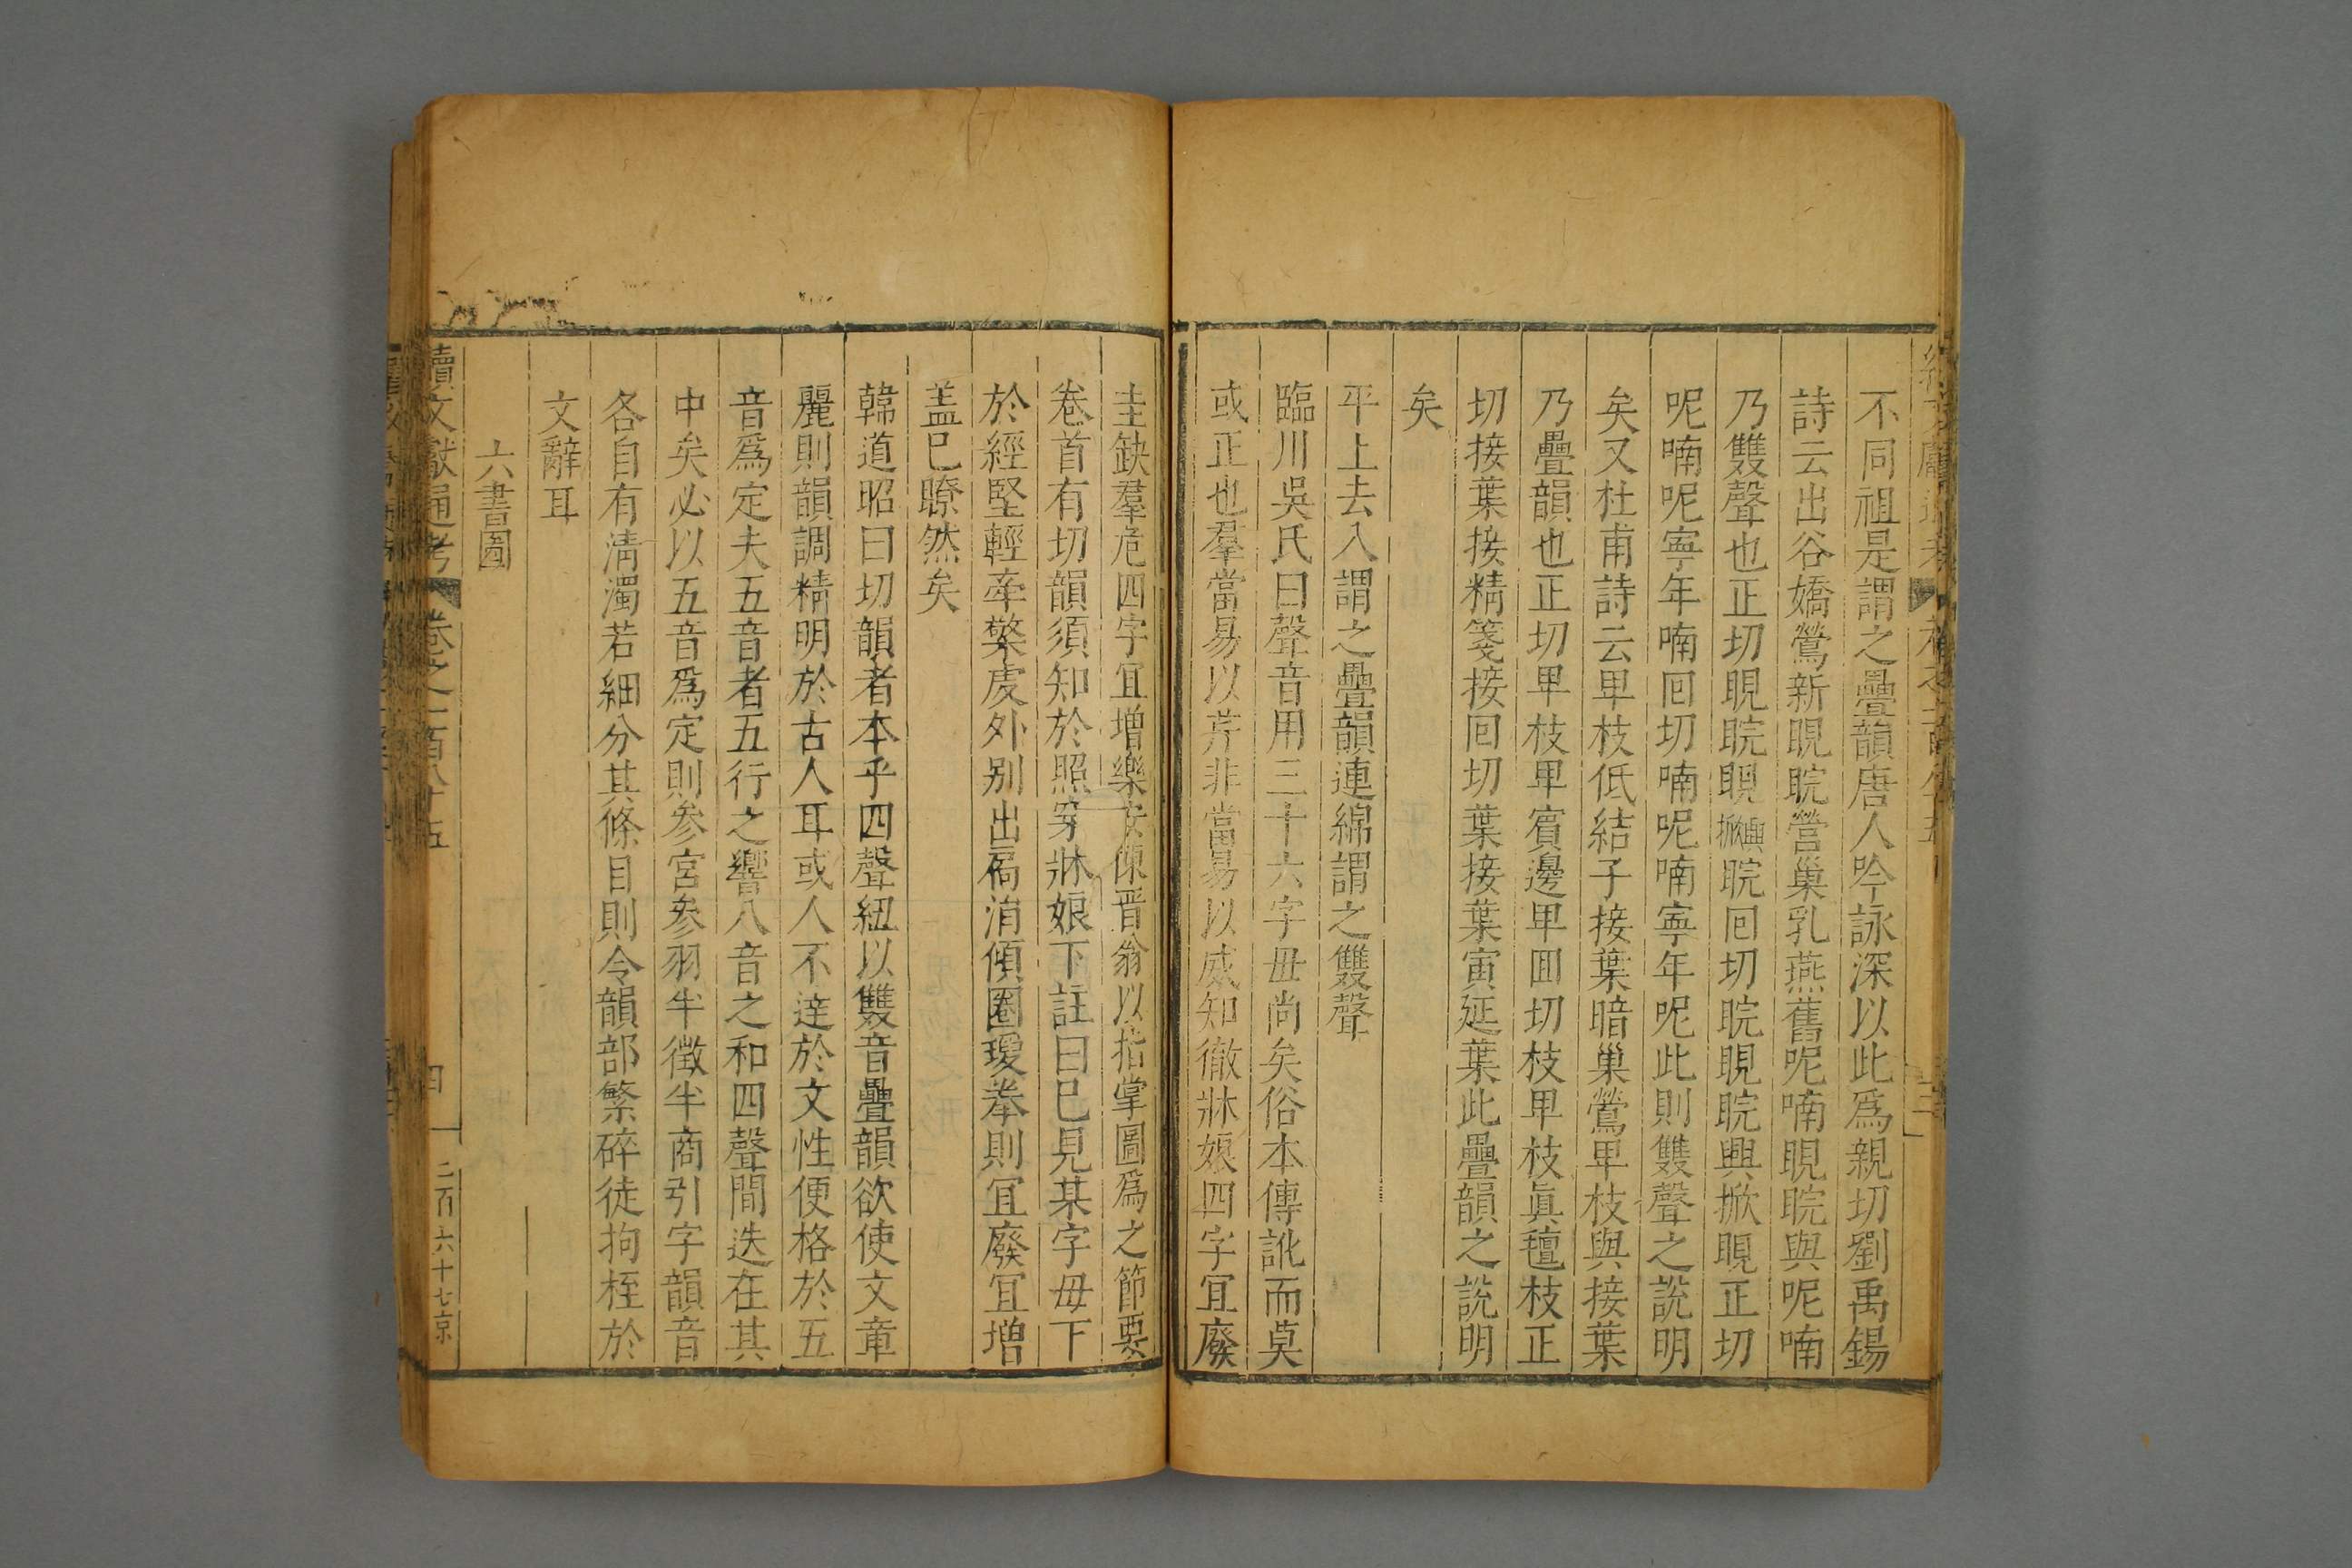 不同祖是謂之疊韻唐人吟詠深以此爲親切劉禹錫
詩云出谷嬌鶯新睍睆營巢乳燕舊呢喃睍睆與呢喃
乃雙聲也正切睍睆睍掀興睆回切睆睍睆興掀睍正切
呢喃呢寧年喃回切喃呢喃寧年呢此則雙聲之說明
矣又杜甫詩云卑枝低結子接葉暗巢鶯卑枝與接葉
乃疊韻也正切卑枝卑賓邊卑回切枝卑枝眞氊枝正
切接葉接精箋接回切葉接葉寅延葉此疊韻之說明
矣
平上去入謂之疊韻連綿謂之雙聲
臨川吳氏曰聲音用三十六字毋尚矣俗本傳訛而莫
或正也羣當易以芹非當易以威知徹牀娘四字冝廢
圭缺羣危四字冝增樂安陳晋翁以指掌圖爲之節要
卷首有切韻須知於照穿牀娘下註曰已見某字毋下
於經堅輕牽檠虔外别出扃涓傾圈瓊拳則冝廢冝增
盖已瞭然矣
韓道昭曰切韻者本乎四聲紐以雙音疊韻欲使文章
麗則韻調精明於古人耳或人不達於文性便格於五
音爲定夫五音者五行之響八音之和四聲間迭在其
中矣必以五音爲定則參宮參羽半徵半商引字韻音
各自有清濁若細分其條目則令韻部繁碎徒拘桎於
文辭耳
六書圖
續文獻通考 卷之一百八十五
四
二百六十七京